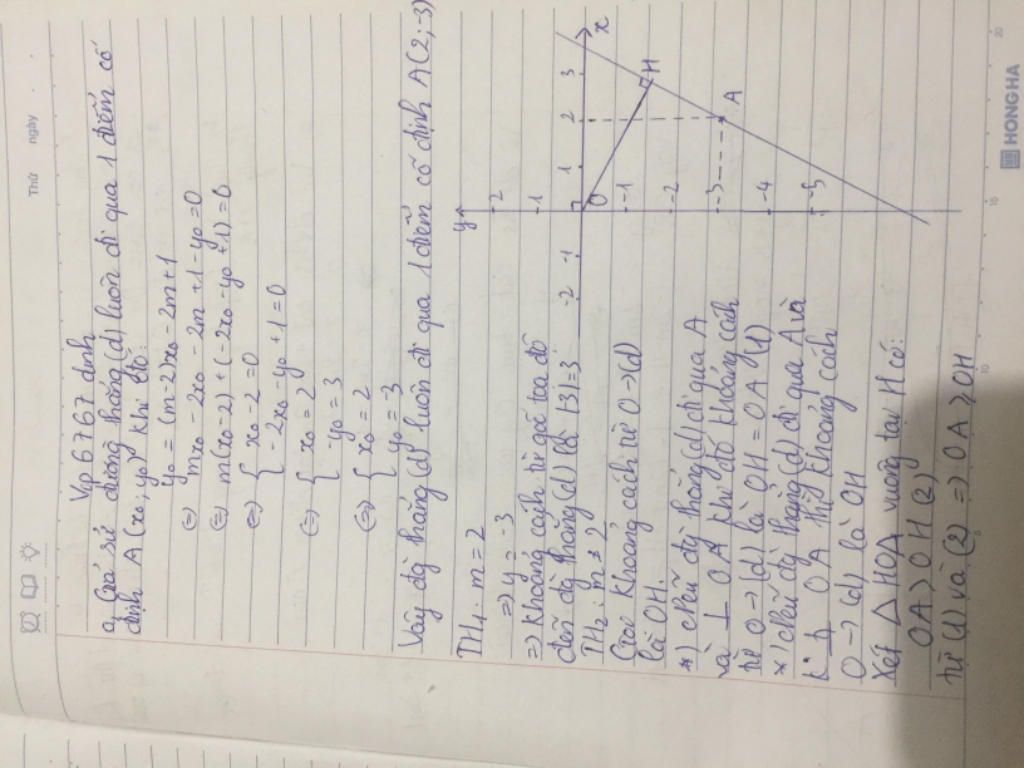 Thứ ngày
Vp 6767 dinh
a, Giả sử đường thẳng (d) luôn đi qua 1 điểm cố
định A(x₀; y₀) khi đó:
y₀ = (m-2)x₀ - 2m + 1
(=) mx₀ - 2x₀ - 2m + 1 - y₀ = 0
(=) m(x₀-2) + (-2x₀ - y₀ + 1) = 0
(=) { x₀ - 2 = 0
-2x₀ - y₀ + 1 = 0
(=) { x₀ = 2
-y₀ = 3
(=) { x₀ = 2
y₀ = -3
Vậy đg thẳng (d) luôn đi qua 1 điểm cố định A(2;-3)
TH1: m = 2
=> y = -3
=> Khoảng cách từ gốc tọa độ
đến đg thẳng (d) là: |-3| = 3
TH2: m ≠ 2
Gọi khoảng cách từ O -> (d)
là OH.
*) Nếu đg thẳng (d) đi qua A
và ⊥ OA khi đó khoảng cách
từ O -> (d) là OH = OA (1)
*) Nếu đg thẳng (d) đi qua A và
k. ⊥ OA thì khoảng cách
O -> (d) là OH
Xét △ HOA vuông tại H có:
OA > OH (2)
từ (1) và (2) => OA ≥ OH
y
2
1
-2
-1
O
1
2
3
x
H
-1
-2
-3
A
-4
-5
5
10
15
20
HONG HA